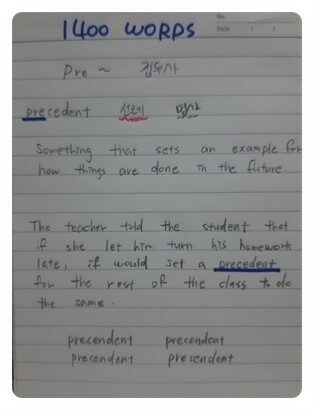 1400 WORDS
No.
Date / /
Pre ~ 접두사
precedent 선례 명사
Something that sets an example for
how things are done in the future.
The teacher told the student that
if she let him turn his homework
late, if would set a precedent
for the rest of the class to do
the same.
precendent precendent
precendent precendent